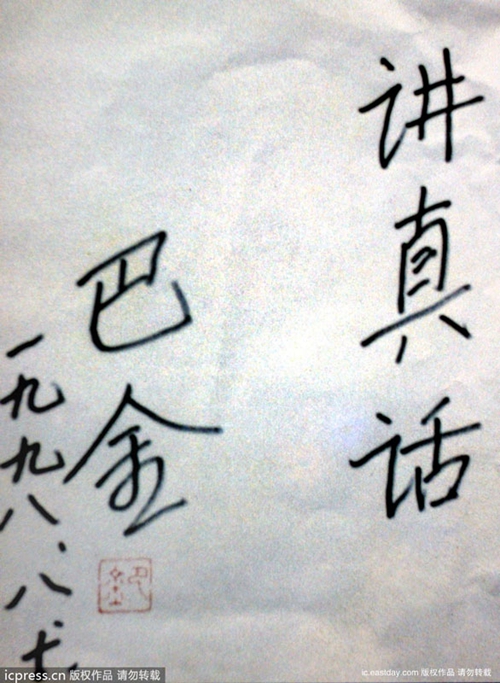 讲真话
巴金
一九九八、八、七
icpress.cn 版权作品 请勿转载
ic.eastday.com 版权作品 请勿转载